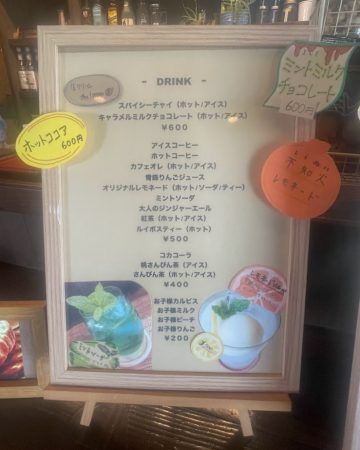 - DRINK -
スパイシーチャイ（ホット/アイス）
キャラメルミルクチョコレート（ホット/アイス）
¥600
アイスコーヒー
ホットコーヒー
カフェオレ（ホット/アイス）
青森りんごジュース
オリジナルレモネード（ホット/ソーダ/ティー）
ミントソーダ
大人のジンジャーエール
紅茶（ホット/アイス）
ルイボスティー（ホット）
¥500
コカコーラ
桃さんぴん茶（アイス）
さんぴん茶（ホット/アイス）
¥400
お子様カルピス
お子様ミルク
お子様ピーチ
お子様りんご
¥200
ホットココア
600円
ミントミルク
チョコレート
600円
不知火
レモネード
ミントソーダ